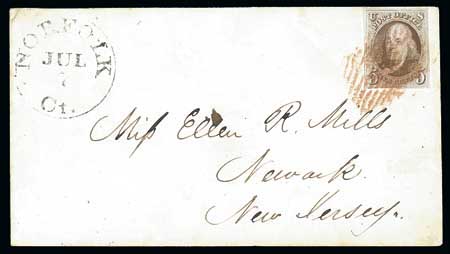 NORFOLK
JUL
7
Ct.
U S
POST OFFICE
5 5
Miſs Ellen R. Mills
Newark.
New Jersey.